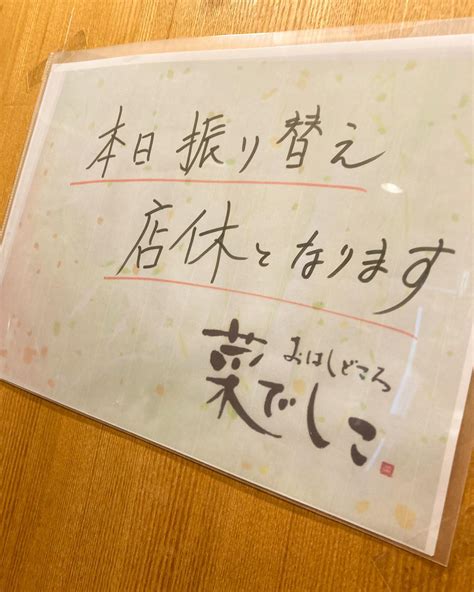 本日振り替え
店休となります
おはしどころ
菜でしこ